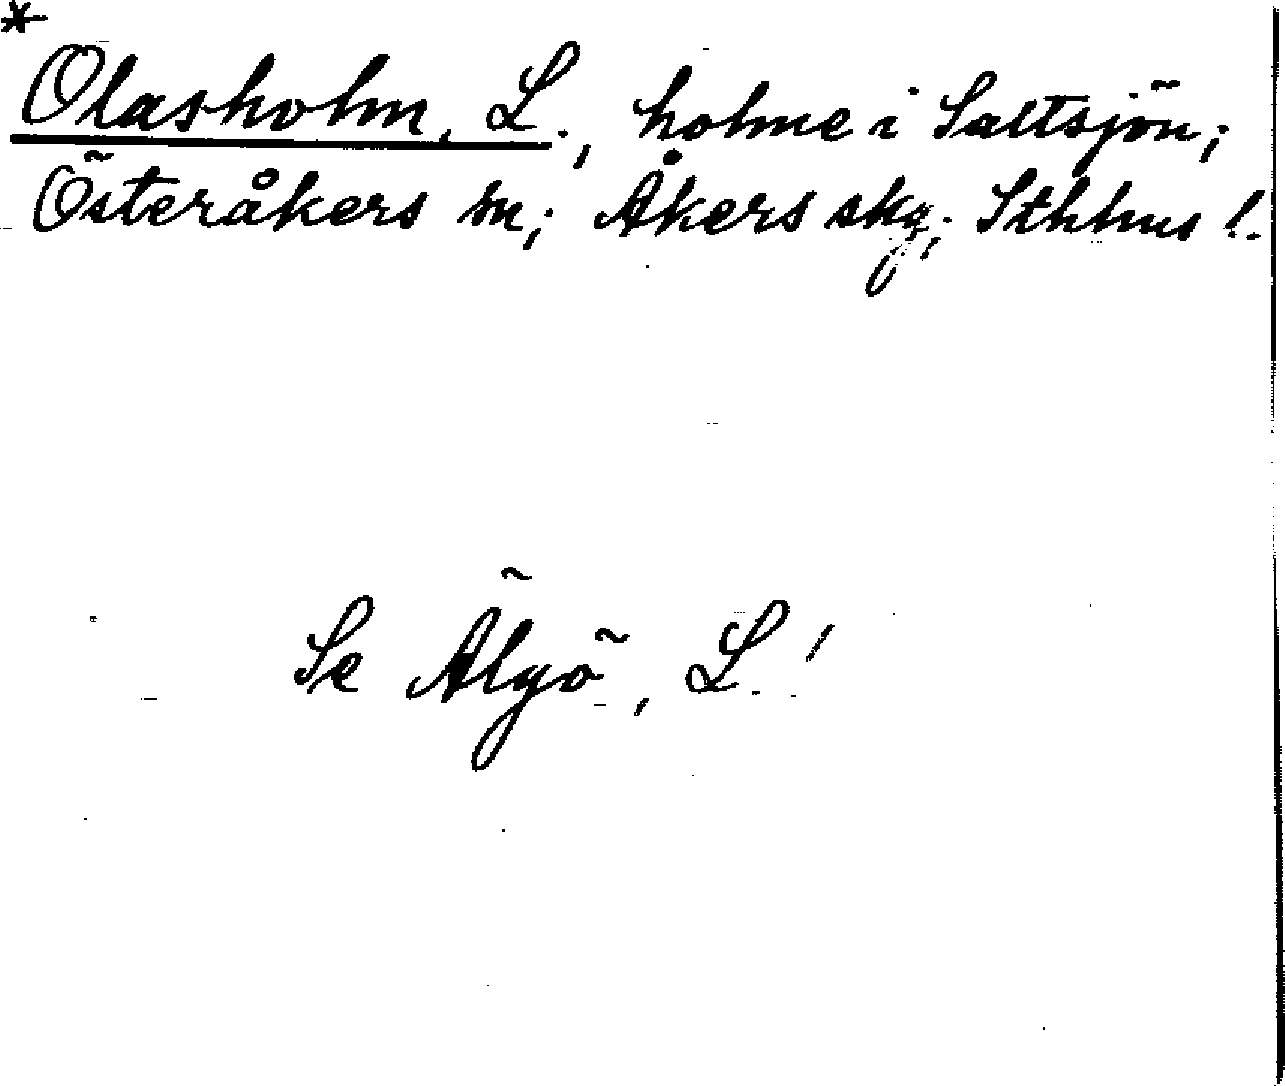 *
Olasholm, L., holme i Saltsjön;
Österåkers sn; Åkers skg; Sthlms l.
Se Älgö, L!